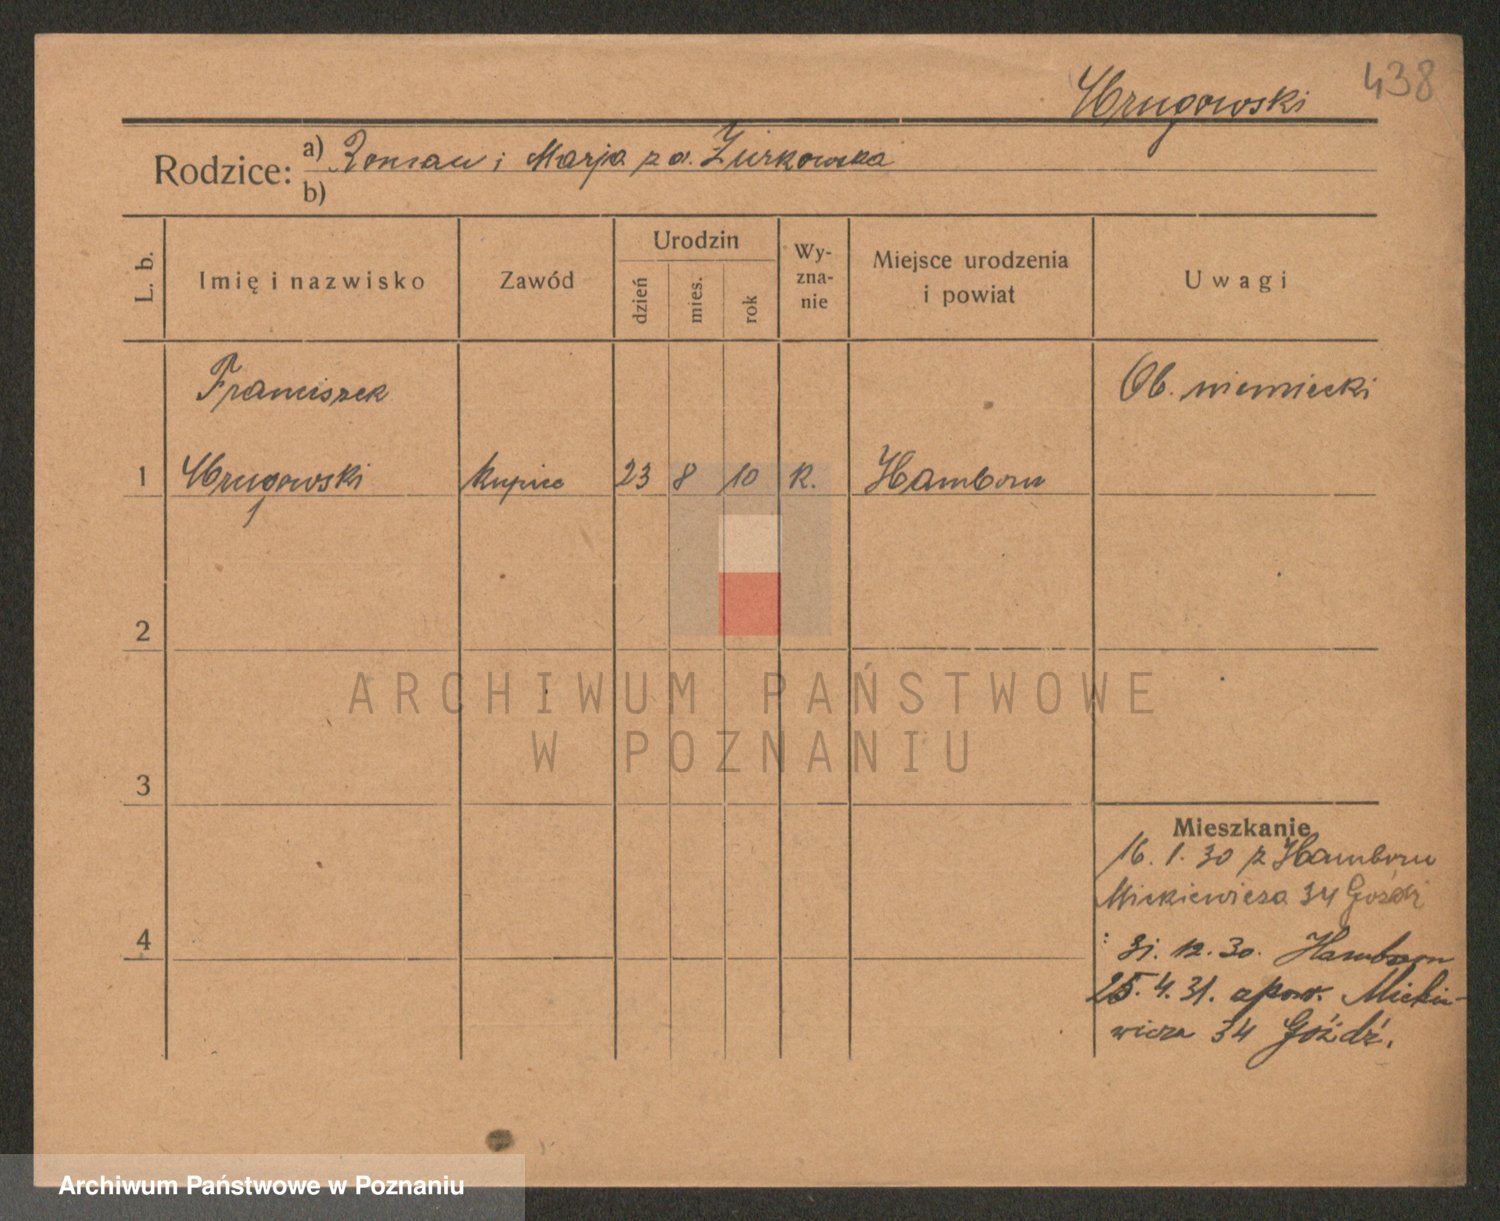 438
Wrugowski
Rodzice:
a) Roman i Marja z d. Żurkowska
b)
L. b.
Imię i nazwisko
Zawód
Urodzin
dzień
mies.
rok
Wy-
zna-
nie
Miejsce urodzenia
i powiat
Uwagi
Franciszek
Ob. niemiecki
1 Wrugowski kupiec 23 8 10 R. Hamborn
2
ARCHIWUM PAŃSTWOWE
W POZNANIU
3
Mieszkanie
16. 1. 30 z Hamborn
Mickiewicza 34 Goździ
4
31. 12. 30. Hamborn
25. 4. 31. z pow. Mickie-
wicza 34 Goźdź.
Archiwum Państwowe w Poznaniu